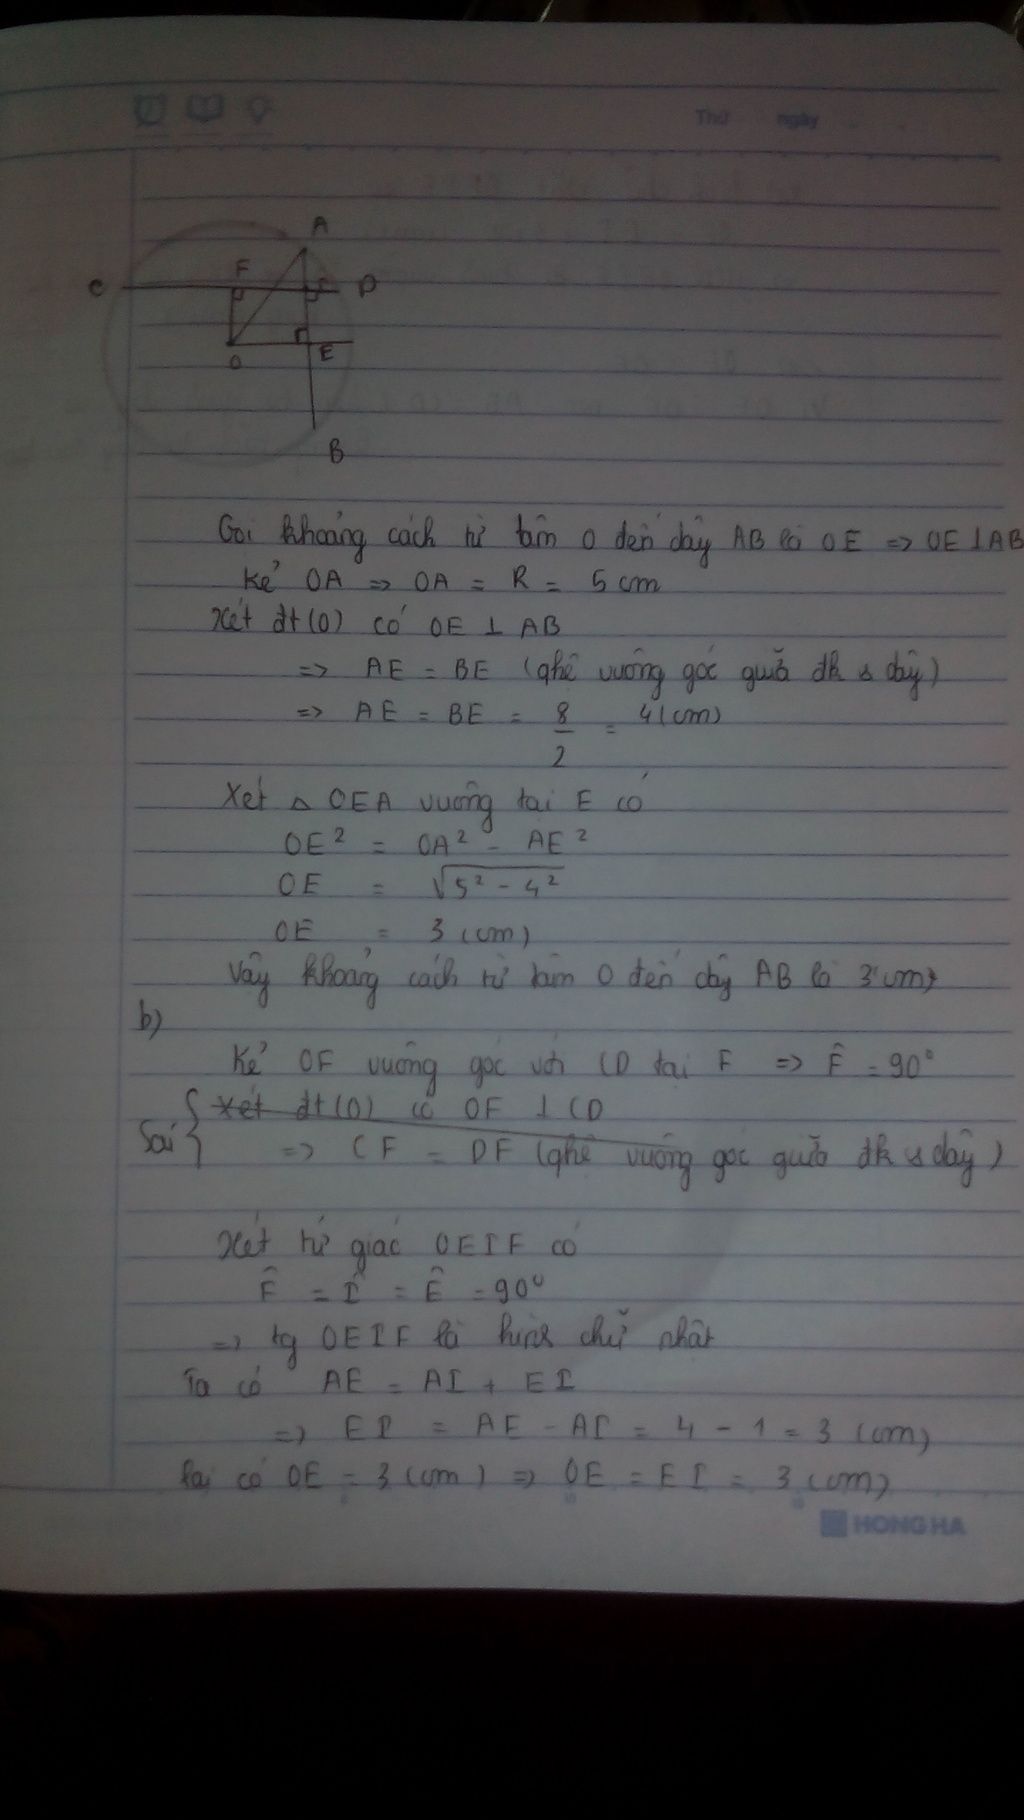 Thứ ngày
A
C F I D
O E
B
Gọi khoảng cách từ tâm O đến dây AB là OE => OE ⊥ AB
Kẻ OA => OA = R = 5 cm
Xét đt(O) có OE ⊥ AB
=> AE = BE (qhệ vuông góc giữa đk & dây)
=> AE = BE = 8/2 = 4(cm)
Xét △ OEA vuông tại E có
OE² = OA² - AE²
OE = √5² - 4²
OE = 3 (cm)
Vậy khoảng cách từ tâm O đến dây AB là 3 (cm)
b)
Kẻ OF vuông góc với CD tại F => F̂ = 90°
Xét đt(O) có OF ⊥ CD
Sai { => CF = DF (qhệ vuông góc giữa đk & dây)
Xét tứ giác OEIF có
F̂ = Î = Ê = 90°
=> tg OEIF là hình chữ nhật
Ta có AE = AI + EI
=> EI = AE - AI = 4 - 1 = 3 (cm)
lại có OE = 3 (cm) => OE = EI = 3 (cm)
HONG HA